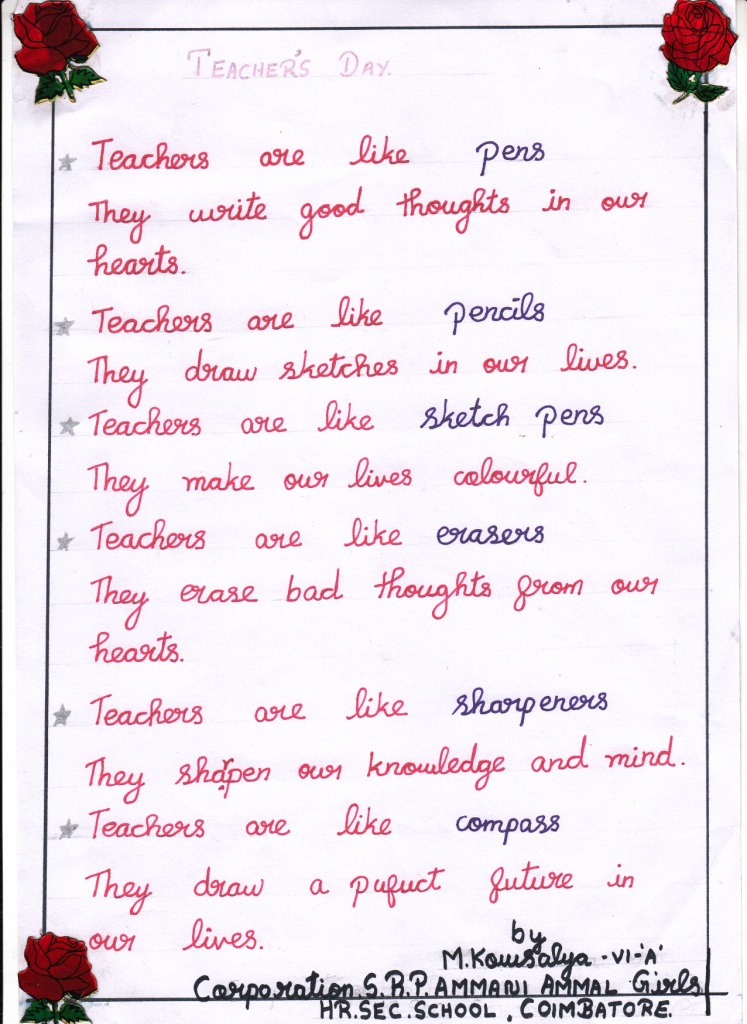 TEACHER'S DAY.
Teachers are like pens
They write good thoughts in our
hearts.
Teachers are like pencils
They draw sketches in our lives.
Teachers are like sketch pens
They make our lives colourful.
Teachers are like erasers
They erase bad thoughts from our
hearts.
Teachers are like sharpeners
They sharpen our knowledge and mind.
Teachers are like compass
They draw a pufuct future in
our lives.
by
M.Kowsalya -VI-'A'
Corporation.S.R.P.AMMANI AMMAL Girls
HR.SEC.SCHOOL, COIMBATORE.